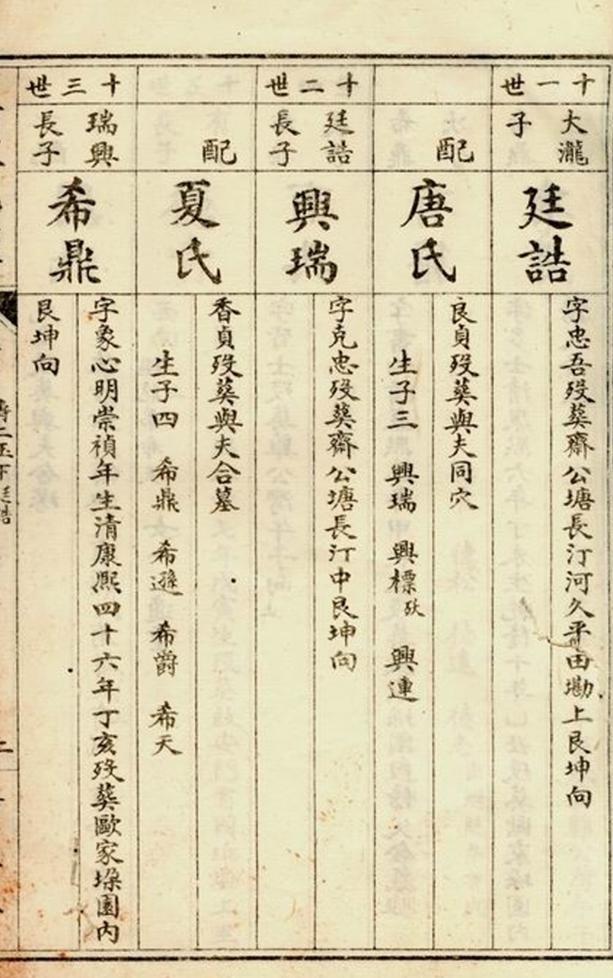 十一世
大瀧
子
廷誥
字忠吾殁葬齋公塘長汀河久平由墈上艮坤向
配
唐氏
良貞殁葬與夫同穴
生子三 興瑞 興標殀 興連
十二世
廷誥
長子
興瑞
字克忠殁葬齋公塘長汀中艮坤向
配
夏氏
香貞殁葬與夫合墓
生子四 希鼎 希遜 希爵 希天
十三世
瑞興
長子
希鼎
字象心明崇禎年生清康熙四十六年丁亥殁葬歐家垛園内
艮坤向